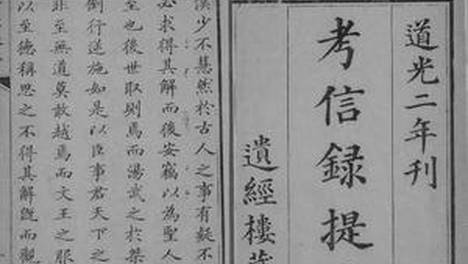 道光二年刊
考信録提
遺經樓
溪少不慧然於古人之事有疑不
必求得其解而後安竊以為聖人
至也後世取則焉而湯武之於桀
倒行逆施如是以臣事君天下之
非至無道莫敢越焉而文王之服
以至德稱思之不得其解既而觀